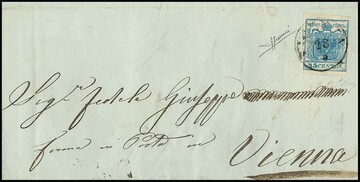 13
45 CENTES
Sig.r fedele Giuseppe
ferma in Posta in
Vienna